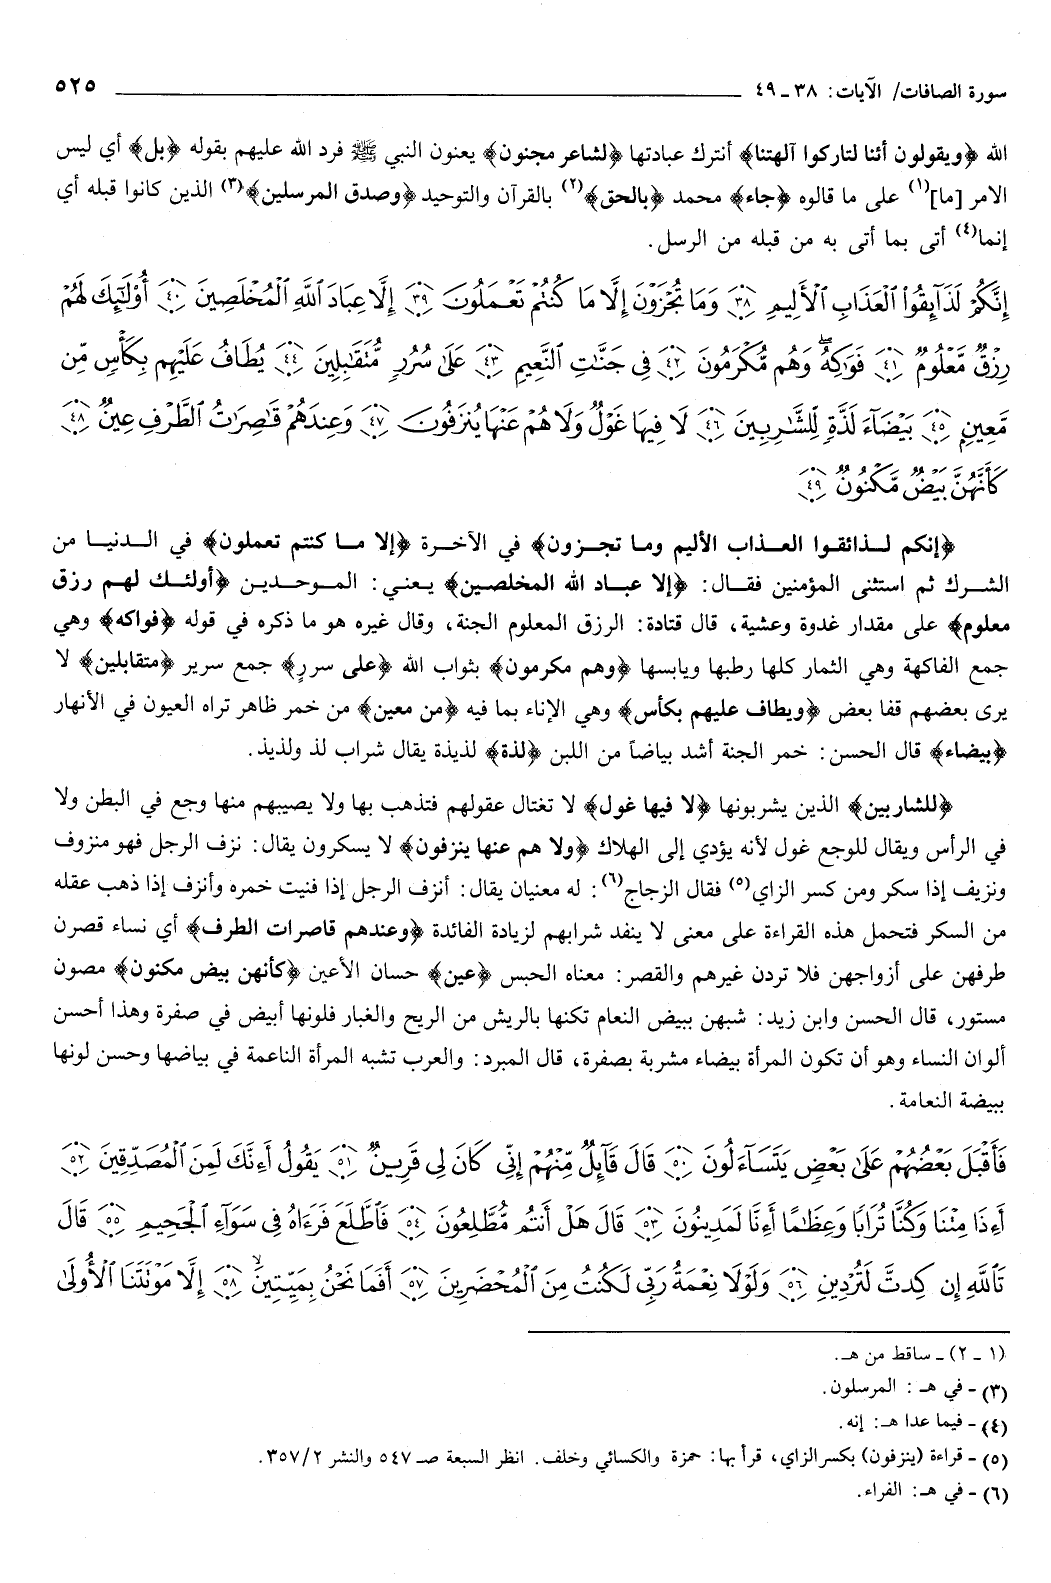 سورة الصافات/ الآيات: ٣٨ ـ ٤٩ ٥٢٥
الله ﴿ويقولون أئنا لتاركوا آلهتنا﴾ أنترك عبادتها ﴿لشاعر مجنون﴾ يعنون النبي ﷺ فرد الله عليهم بقوله ﴿بل﴾ أي ليس
الامر [ما](١) على ما قالوه ﴿جاء﴾ محمد ﴿بالحق﴾(٢) بالقرآن والتوحيد ﴿وصدق المرسلين﴾(٣) الذين كانوا قبله أي
إنما(٤) أتى بما أتى به من قبله من الرسل.
إِنَّكُمْ لَذَآئِقُوا۟ ٱلْعَذَابِ ٱلْأَلِيمِ ﴿٣٨﴾ وَمَا تُجْزَوْنَ إِلَّا مَا كُنتُمْ تَعْمَلُونَ ﴿٣٩﴾ إِلَّا عِبَادَ ٱللَّهِ ٱلْمُخْلَصِينَ ﴿٤٠﴾ أُو۟لَٰٓئِكَ لَهُمْ
رِزْقٌ مَّعْلُومٌ ﴿٤١﴾ فَوَٰكِهُ ۖ وَهُم مُّكْرَمُونَ ﴿٤٢﴾ فِى جَنَّٰتِ ٱلنَّعِيمِ ﴿٤٣﴾ عَلَىٰ سُرُرٍ مُّتَقَٰبِلِينَ ﴿٤٤﴾ يُطَافُ عَلَيْهِم بِكَأْسٍ مِّن
مَّعِينٍۭ ﴿٤٥﴾ بَيْضَآءَ لَذَّةٍ لِّلشَّٰرِبِينَ ﴿٤٦﴾ لَا فِيهَا غَوْلٌ وَلَا هُمْ عَنْهَا يُنزَفُونَ ﴿٤٧﴾ وَعِندَهُمْ قَٰصِرَٰتُ ٱلطَّرْفِ عِينٌ ﴿٤٨﴾
كَأَنَّهُنَّ بَيْضٌ مَّكْنُونٌ ﴿٤٩﴾
﴿إنكم لـذائقـوا العـذاب الأليم ومـا تجـزون﴾ في الآخـرة ﴿إلا مـا كنتم تعملون﴾ في الـدنيـا من
الشـرك ثم استثنى المؤمنين فقـال: ﴿إلا عبـاد الله المخلصـين﴾ يـعني: المـوحـديـن ﴿أولئـك لهـم رزق
معلوم﴾ على مقدار غدوة وعشية، قال قتادة: الرزق المعلوم الجنة، وقال غيره هو ما ذكره في قوله ﴿فواكه﴾ وهي
جمع الفاكهة وهي الثمار كلها رطبها ويابسها ﴿وهم مكرمون﴾ بثواب الله ﴿على سررٍ﴾ جمع سرير ﴿متقابلين﴾ لا
يرى بعضهم قفا بعض ﴿ويطاف عليهم بكأس﴾ وهي الإناء بما فيه ﴿من معين﴾ من خمر ظاهر تراه العيون في الأنهار
﴿بيضاء﴾ قال الحسن: خمر الجنة أشد بياضاً من اللبن ﴿لذة﴾ لذيذة يقال شراب لذ ولذيذ.
﴿للشاربين﴾ الذين يشربونها ﴿لا فيها غول﴾ لا تغتال عقولهم فتذهب بها ولا يصيبهم منها وجع في البطن ولا
في الرأس ويقال للوجع غول لأنه يؤدي إلى الهلاك ﴿ولا هم عنها ينزفون﴾ لا يسكرون يقال: نزف الرجل فهو منزوف
ونزيف إذا سكر ومن كسر الزاي(٥) فقال الزجاج(٦): له معنيان يقال: أنزف الرجل إذا فنيت خمره وأنزف إذا ذهب عقله
من السكر فتحمل هذه القراءة على معنى لا ينفد شرابهم لزيادة الفائدة ﴿وعندهم قاصرات الطرف﴾ أي نساء قصرن
طرفهن على أزواجهن فلا تردن غيرهم والقصر: معناه الحبس ﴿عين﴾ حسان الأعين ﴿كأنهن بيض مكنون﴾ مصون
مستور، قال الحسن وابن زيد: شبهن ببيض النعام تكنها بالريش من الريح والغبار فلونها أبيض في صفرة وهذا أحسن
ألوان النساء وهو أن تكون المرأة بيضاء مشربة بصفرة، قال المبرد: والعرب تشبه المرأة الناعمة في بياضها وحسن لونها
ببيضة النعامة.
فَأَقْبَلَ بَعْضُهُمْ عَلَىٰ بَعْضٍ يَتَسَآءَلُونَ ﴿٥٠﴾ قَالَ قَآئِلٌ مِّنْهُمْ إِنِّى كَانَ لِى قَرِينٌ ﴿٥١﴾ يَقُولُ أَءِنَّكَ لَمِنَ ٱلْمُصَدِّقِينَ ﴿٥٢﴾
أَءِذَا مِتْنَا وَكُنَّا تُرَابًا وَعِظَٰمًا أَءِنَّا لَمَدِينُونَ ﴿٥٣﴾ قَالَ هَلْ أَنتُم مُّطَّلِعُونَ ﴿٥٤﴾ فَٱطَّلَعَ فَرَءَاهُ فِى سَوَآءِ ٱلْجَحِيمِ ﴿٥٥﴾ قَالَ
تَٱللَّهِ إِن كِدتَّ لَتُرْدِينِ ﴿٥٦﴾ وَلَوْلَا نِعْمَةُ رَبِّى لَكُنتُ مِنَ ٱلْمُحْضَرِينَ ﴿٥٧﴾ أَفَمَا نَحْنُ بِمَيِّتِينَ ﴿٥٨﴾ إِلَّا مَوْتَتَنَا ٱلْأُولَىٰ
(١ ـ ٢) ـ ساقط من هـ.
(٣) ـ في هـ: المرسلون.
(٤) ـ فيما عدا هـ: إنه.
(٥) ـ قراءة (ينزفون) بكسر الزاي، قرأ بها: حمزة والكسائي وخلف. انظر السبعة صـ ٥٤٧ والنشر ٣٥٧/٢.
(٦) ـ في هـ: الفراء.